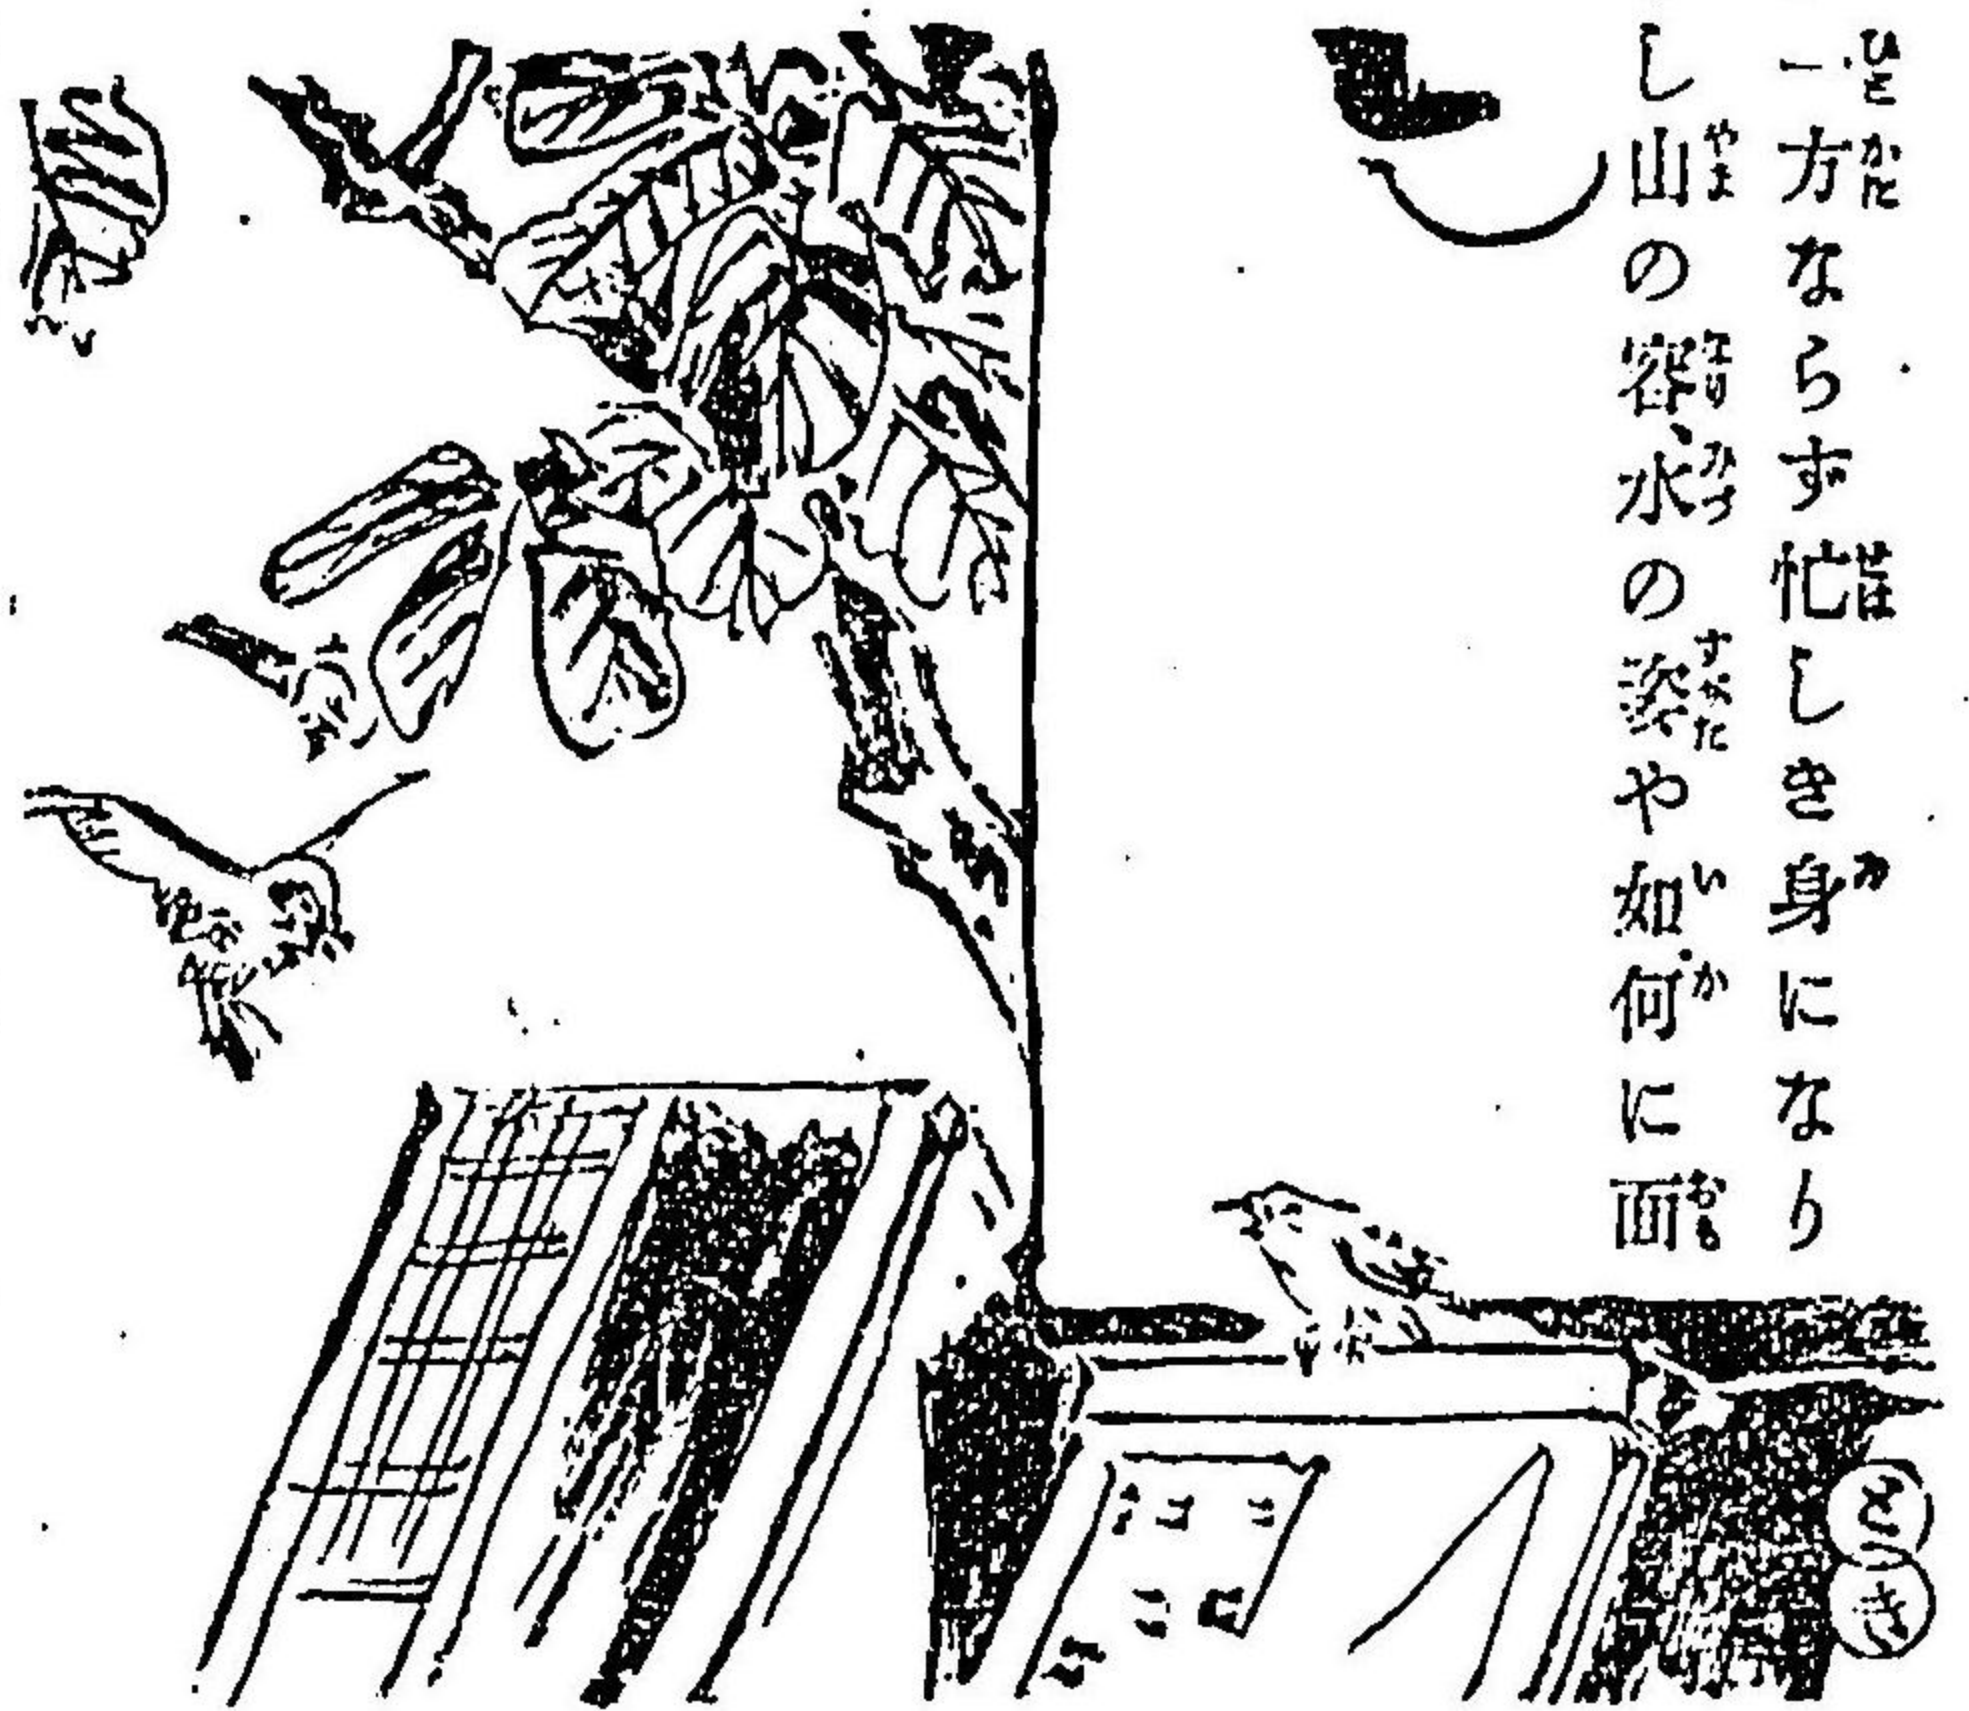 一方ならず忙しき身になり
し山の容、水の姿や如何に面